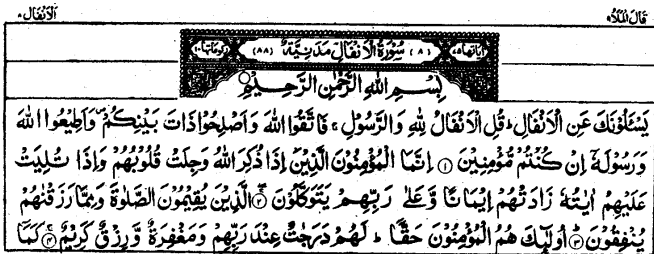 قَالَ الْمَلَأُ ٩
اَلْاَنْفَال ٨
اٰيَاتُهَا ٧٥ (٨) سُوْرَةُ الْاَنْفَالِ مَدَنِيَّةٌ (٨٨) رُكُوْعَاتُهَا ١٠
بِسْمِ اللهِ الرَّحْمٰنِ الرَّحِيْمِ
يَسْـَٔلُوْنَكَ عَنِ الْاَنْفَالِ ؕ قُلِ الْاَنْفَالُ لِلّٰهِ وَالرَّسُوْلِ ۚ فَاتَّقُوا اللهَ وَاَصْلِحُوْا ذَاتَ بَيْنِكُمْ ۪ وَاَطِيْعُوا اللهَ
وَرَسُوْلَهٗۤ اِنْ كُنْتُمْ مُّؤْمِنِيْنَ ۝١ اِنَّمَا الْمُؤْمِنُوْنَ الَّذِيْنَ اِذَا ذُكِرَ اللهُ وَجِلَتْ قُلُوْبُهُمْ وَاِذَا تُلِيَتْ
عَلَيْهِمْ اٰيٰتُهٗ زَادَتْهُمْ اِيْمَانًا وَّعَلٰى رَبِّهِمْ يَتَوَكَّلُوْنَ ۝٢ الَّذِيْنَ يُقِيْمُوْنَ الصَّلٰوةَ وَمِمَّا رَزَقْنٰهُمْ
يُنْفِقُوْنَ ۝٣ اُولٰٓئِكَ هُمُ الْمُؤْمِنُوْنَ حَقًّا ؕ لَهُمْ دَرَجٰتٌ عِنْدَ رَبِّهِمْ وَمَغْفِرَةٌ وَّرِزْقٌ كَرِيْمٌ ۝٤ كَمَاۤ